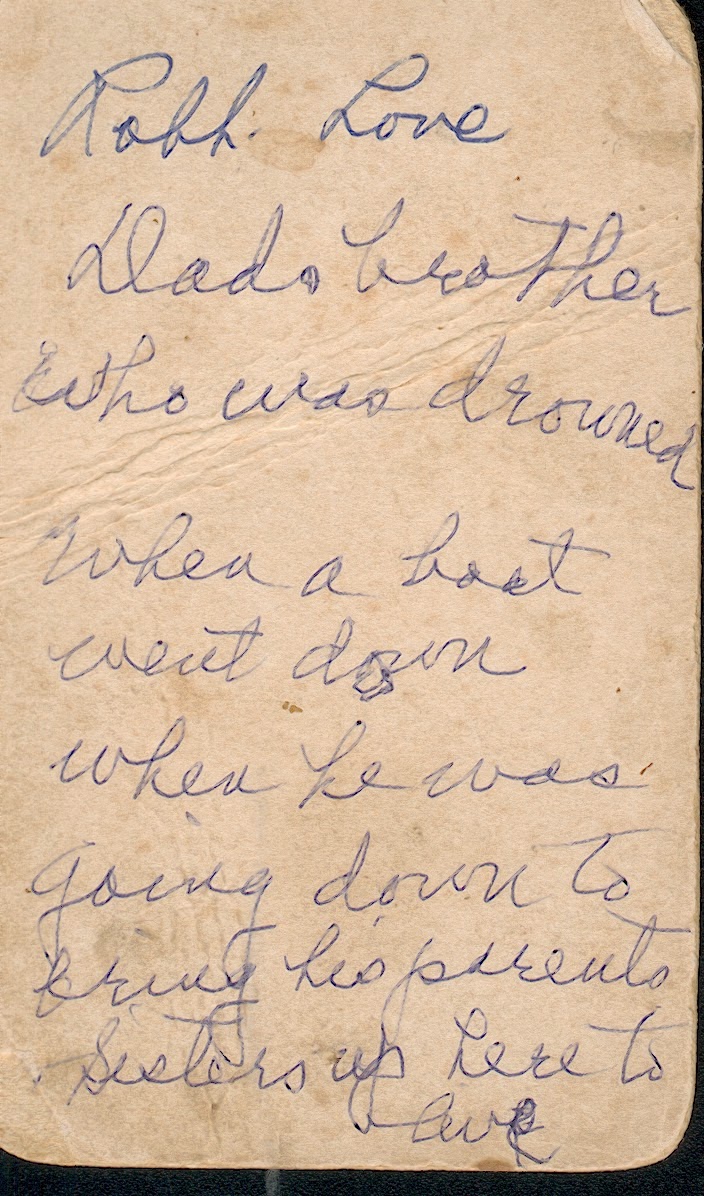 Robt. Love
Dads brother
Who was drowned
When a boat
went down
when he was
going down to
bring his parents
Sisters up here to
live